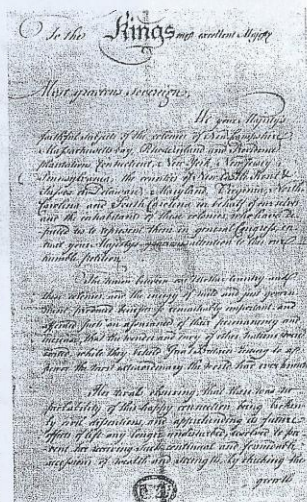 To the Kings most excellent Majesty
Most gracious Sovereign,
We your Majesty's
faithful subjects of the colonies of New Hampshire
Massachusetts bay, Rhode island and Providence
plantations, Connecticut, New York, New Jersey,
Pennsylvania, the counties of New Castle Kent &
Sussex on Delaware, Maryland, Virginia, North
Carolina and South Carolina in behalf of ourselves
and the inhabitants of these colonies, who have de
puted us to represent them in general Congress, en
treat your Majesty's gracious attention to this our
humble petition.
The union between our Mother Country and
these colonies, and the energy of mild and just govern
ment, produced benefits so remarkably important, and
afforded such an assurance of their permanency and
increase, that the wonder and envy of other Nations were
excited, while they beheld Great Britain rising to a
power the most extraordinary the world had ever known
Her rivals observing, that there was no
probability of this happy connection being broken
by civil dissentions, and apprehending its future
effects if left any longer undisturbed, resolved to pre
vent her receiving such continual and formidable
accessions of wealth and strength, by checking the
growth